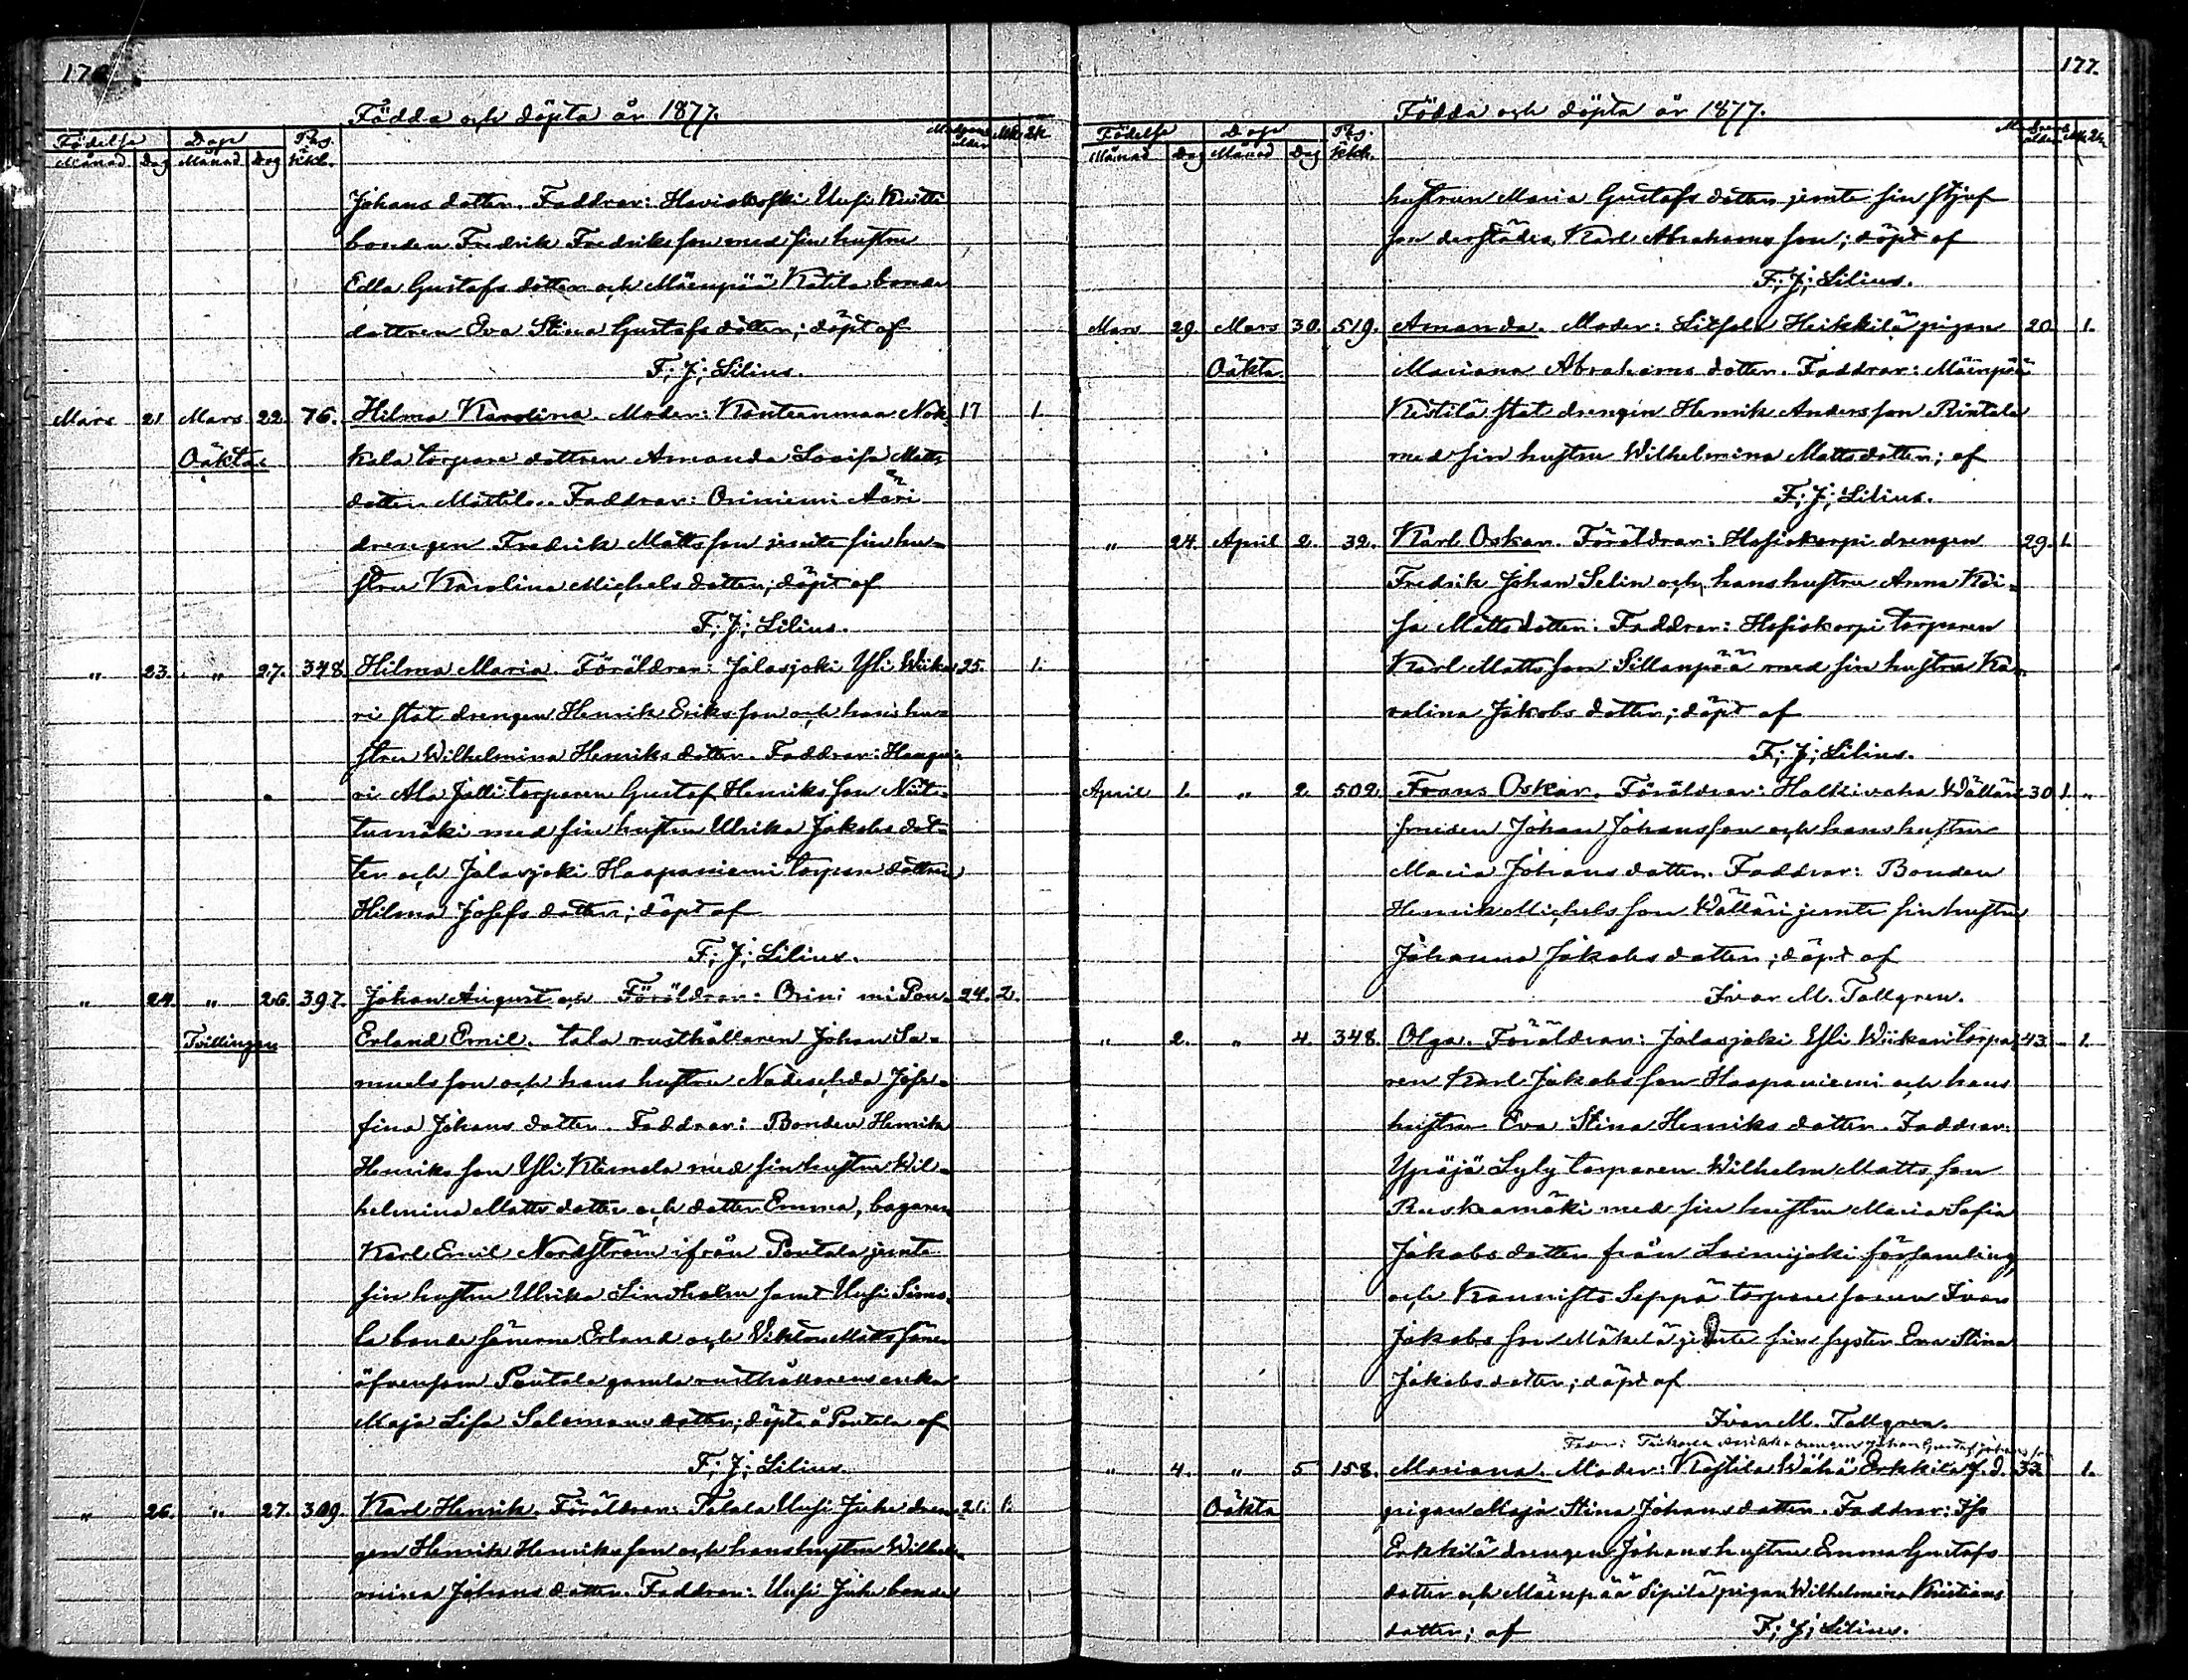 176.
Födda och döpta år 1877.
Födelse Dop Pag. i Moderns ålder Mk. Qk.
Månad Dag Månad Dag Kkb.
Johans dotter. Faddrar: Haviokoski Uusi Knitti
bonden Fredrik Fredriksson med sin hustru
Edla Gustafs dotter och Mäenpää Katila bonde
dottren Eva Stina Gustafs dotter; döpt af
F; J; Lilius.
Mars 21 Mars 22. 76. Hilma Karolina. Moder: Kanteenmaa Nok- 17 1.
Oäkta kala torpare dottren Amanda Lovisa Matts
dotter Mattila. Faddrar: Oriniemi Aäri
drengen Fredrik Mattsson jemte sin hu-
stru Karolina Michels dotter; döpt af
F; J; Lilius.
" 23. " 27. 348. Hilma Maria. Föräldrar: Jalasjoki Yli Wiika- 25. 1.
ri stat drengen Henrik Eriksson och hans hu-
stru Wilhelmina Henriks dotter. Faddrar:
ri Ala Jalli torparen Gustaf Henriksson Niit-
tumäki med sin hustru Ulrika Jakobs dot-
ter och Jalasjoki Haapaniemi torpare dottren
Hilma Josefs dotter; döpt af
F; J; Lilius.
" 24. " 26. 397. Johan August och Föräldrar: Orini mi Pou- 24. 2.
Tvillingar Erland Emil. tala rusthållaren Johan Sa-
muelsson och hans hustru Nadeschda Jose-
fina Johans dotter. Faddrar: Bonden Henrik
Henriksson Yli Kämela med sin hustru Wil-
helmina Matts dotter och dotter Emma, bagaren
Karl Emil Nordström ifrån Poutala jemte
sin hustru Ulrika Lindholm samt Uusi Simo-
la bonde sönerne Erland och Wiktor Matts söner
äfvensom Poutala gamla rusthållarens enka
Maja Lisa Salomons dotter; döpte å Poutala af
F; J; Lilius.
" 26. " 27. 309. Karl Henrik. Föräldrar: Talala Uusi Juke dren- 21. 1.
gen Henrik Henriksson och hans hustru Wilhel-
mina Johans dotter. Faddrar: Uusi Juke bonde
177.
Födda och döpta år 1877.
Födelse Dop Pag. i Moderns ålder Mk. Qk.
Månad Dag Månad Dag Kkb.
hustrun Maria Gustafs dotter jemte sin styf
son derstädes Karl Abrahams son; döpt af
F; J; Lilius.
Mars 29 Mars 30. 519. Amanda. Moder: Heikkilä pigan 20. 1.
Oäkta. Mariana Abrahams dotter. Faddrar: Mäenpää
Kestilä stat drengen Henrik Andersson Rintala
med sin hustru Wilhelmina Mattsdotter; af
F; J; Lilius.
" 24. April 2. 32. Karl Oskar. Föräldrar: Hosiokorpi drengen 29. 1.
Fredrik Johan Selin och hans hustru Anna Kai-
sa Matts dotter. Faddrar: Hosiokorpi torparen
Karl Mattsson Sillanpää med sin hustru Ka-
rolina Jakobs dotter; döpt af
F; J; Lilius.
April 1. " 2. 502. Frans Oskar. Föräldrar: Halkivaha Wälläri 30 1. "
smeden Johan Johansson och hans hustru
Maria Johans dotter. Faddrar: Bonden
Henrik Michelsson Wälläri jemte sin hustru
Johanna Jakobs dotter; döpt af
Ivar M. Tallgren.
" 2. " 4. 348. Olga. Föräldrar: Jalasjoki Yli Wiikari torpa- 43. 1.
ren Karl Jakobsson Haapaniemi och hans
hustru Eva Stina Henriks dotter. Faddrar:
Ypäjä Lyly torparen Wilhelm Mattsson
Ruskeamäki med sin hustru Maria Sofia
Jakobs dotter från Loimijoki församling
och Kannisto Seppä torpare sonen Ivar
Jakobsson Mäkelä jemte sin syster Eva Stina
Jakobsdotter; döpt af
Ivar M. Tallgren.
Fader: drengen Johan Gustaf Johansson
" 4. " 5 158. Mariana. Moder: Kestila Wähä Erkkilä f. d. 33. 1.
Oäkta pigan Maja Stina Johans dotter. Faddrar: Iso
Erkkilä drengen Johans hustru Emma Gustafs
dotter och Mäenpää Sipilä pigan Wilhelmina Kristians
dotter; af F; J; Lilius.